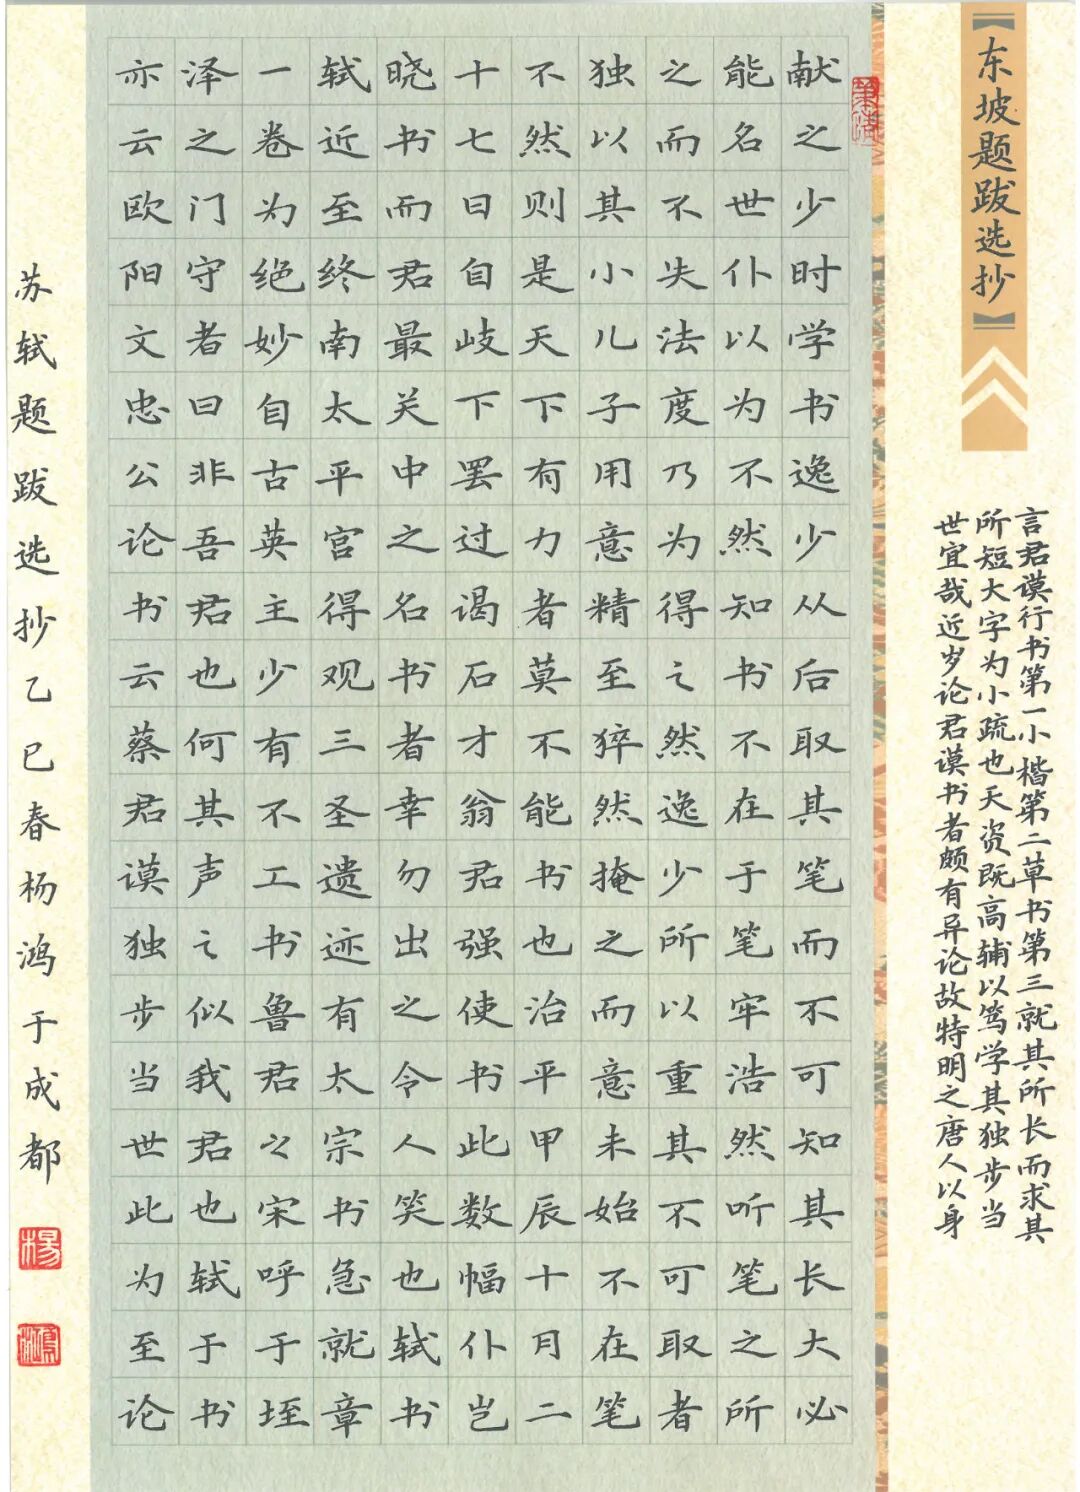 【东坡题跋选抄】
言君谟行书第一小楷第二草书第三就其所长而求其
所短大字为小疏也天资既高辅以笃学其独步当
世宜哉近岁论君谟书者颇有异论故特明之唐人以身
献之少时学书逸少从后取其笔而不可知其长大必
能名世仆以为不然知书不在于笔牢浩然听笔之所
之而不失法度乃为得之然逸少所以重其不可取者
独以其小儿子用意精至猝然掩之而意未始不在笔
不然则是天下有力者莫不能书也治平甲辰十月二
十七日自岐下罢过谒石才翁君强使书此数幅仆岂
晓书而君最关中之名书者幸勿出之令人笑也轼书
轼近至终南太平宫得观三圣遗迹有太宗书急就章
一卷为绝妙自古英主少有不工书鲁君之宋呼于垤
泽之门守者曰非吾君也何其声之似我君也轼于书
亦云欧阳文忠公论书云蔡君谟独步当世此为至论
苏轼题跋选抄乙巳春杨鸿于成都
楊